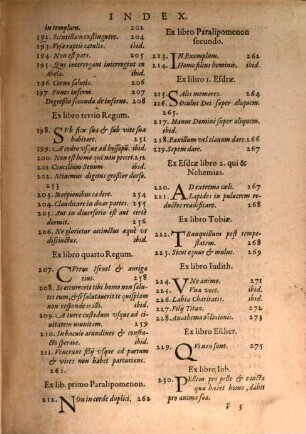 INDEX.
in templum. 202
192. Scintillam extinguere. 203
193. Vasa captis catulis. ibid.
194. Non est pars. 205
195. Qui interrogant interrogent in
Abela. ibid.
196. Cervus salutis. 206
197. Punes infirmi. 207
Digressio secunda de infirm. 208
Ex libro tertio Regum.
198. SVb ficu sua & sub vite sua
habitare. 251
199. A cedro vsque ad hyssopum. ibid.
200. Non est homo qui non peccet. ibid.
201. Concilium Senum. ibid.
202. Minimus digitus grossior dorso.
253
203. Scorpionibus cædere. 254
204. Claudicare. ibid.
205. Aut in diversorio est aut certè
dormit. 256
206. Ne glorietur accinctus æquè vt
discinctus. ibid.
Ex libro quarto Regum.
207. CVrrus Israel & auriga
eius. 258
208. Si occurrerit tibi homo non salutes
eum, & si salutaverit te quispiam
non respondeas illi. ibid.
209. A turre custodum vsque ad civitatem
munitam. ibid.
210. In baculo arundineo & confracto
sperare. ibid.
211. Venerunt filij vsque ad partum &
vires non habet parturiens.
261
Ex lib. primo Paralipomenon.
212. NOn in corde duplici. 262
Ex libro Paralipomenon
secundo.
213. IN Exemplum. 262
214. Homo filius hominis. ibid.
Ex libro 1. Esdræ.
215. SAlis memores. 264
216. Oculus Dei super aliquem.
265.
217. Manus Domini super aliquem.
ibid.
218. Paxillum vel clauum dare. 266
219. Sepem dare. 267
Ex Esdræ libro 2. qui &
Nehemias.
220. AD extrema cæli. 267
221. Lapides in puluerem
reductos reædificare. 268
Ex libro Tobiæ.
222. TRanquillum post tempestatem.
268
223. Sicut equus & mulus. ibid.
Ex libro Iudith.
224. NE anima. 271
225. Vna voce. ibid.
226. Labia Charitatis. ibid.
227. Filij Titan. 272
228. Anathema obliuionis. ibid.
Ex libro Esther.
229. QVinos sunt. 275
Ex libro Iob.
230. PEllem pro pelle & cuncta
quæ habet homo, dabit
pro anima sua. ibid.
r 5